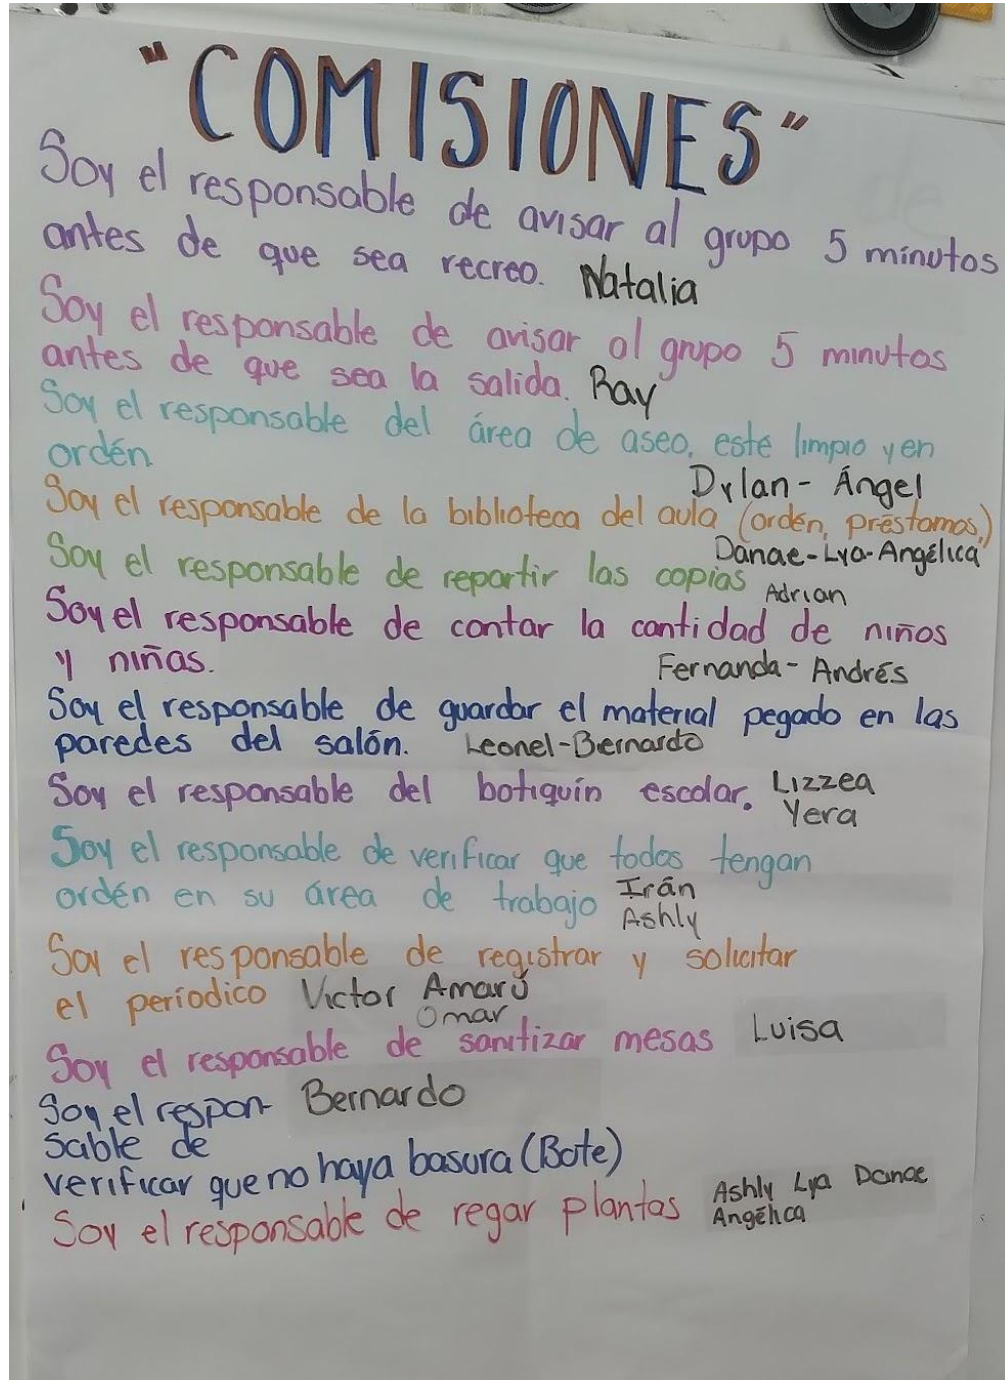 "COMISIONES"
Soy el responsable de avisar al grupo 5 minutos
antes de que sea recreo. Natalia
Soy el responsable de avisar al grupo 5 minutos
antes de que sea la salida. Ray
Soy el responsable del área de aseo, este limpio y en
ordén.
Dylan - Ángel
Soy el responsable de la biblioteca del aula (ordén, préstamos,)
Danae - Lya - Angélica
Soy el responsable de repartir las copias Adrian
Soy el responsable de contar la cantidad de niños
y niñas. Fernanda - Andrés
Soy el responsable de guardar el material pegado en las
paredes del salón. Leonel - Bernardo
Soy el responsable del botiquín escolar. Lizzea
Yera
Soy el responsable de verificar que todos tengan
ordén en su área de trabajo Irán
Ashly
Soy el responsable de registrar y solicitar
el períodico Victor Amarú
Omar
Soy el responsable de sanitizar mesas Luisa
Soy el respon- Bernardo
sable de
verificar que no haya basura (Bote)
Soy el responsable de regar plantas Ashly Lya Danae
Angélica